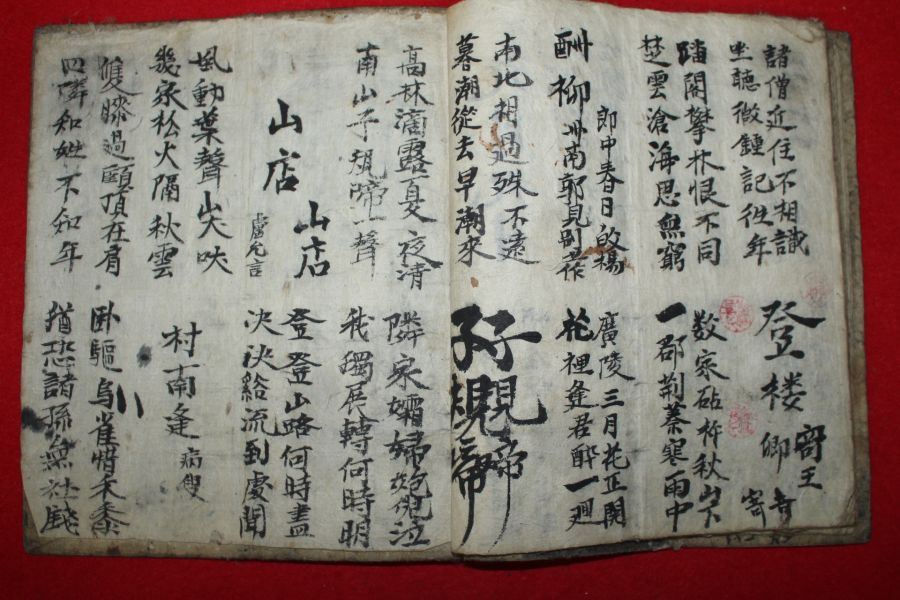 諸僧近住不相識
坐聽微鍾記往年
登楼
寄王
卿
踏閣攀林恨不同
楚雲滄海思無窮
数家砧杵秋山下
一郡荊蓁寒雨中
酬柳
郎中春日啟揚
州南郭見別作
廣陵三月花正開
花裡逢君醉一廻
南北相過殊不遠
暮潮從去早潮來
子規啼
高林滴露夏夜清
南山子規啼一聲
隣家孀婦抱兒泣
我獨展轉何時明
山店
山店
盧允言
登登山路何時盡
決決絡流到處聞
風動葉聲山犬吠
幾家松火隔秋雲
村南逢
病叟
雙膝過頤頂在肩
四隣知姓不知年
臥驅烏雀惜禾黍
猶恐諸孫無社錢